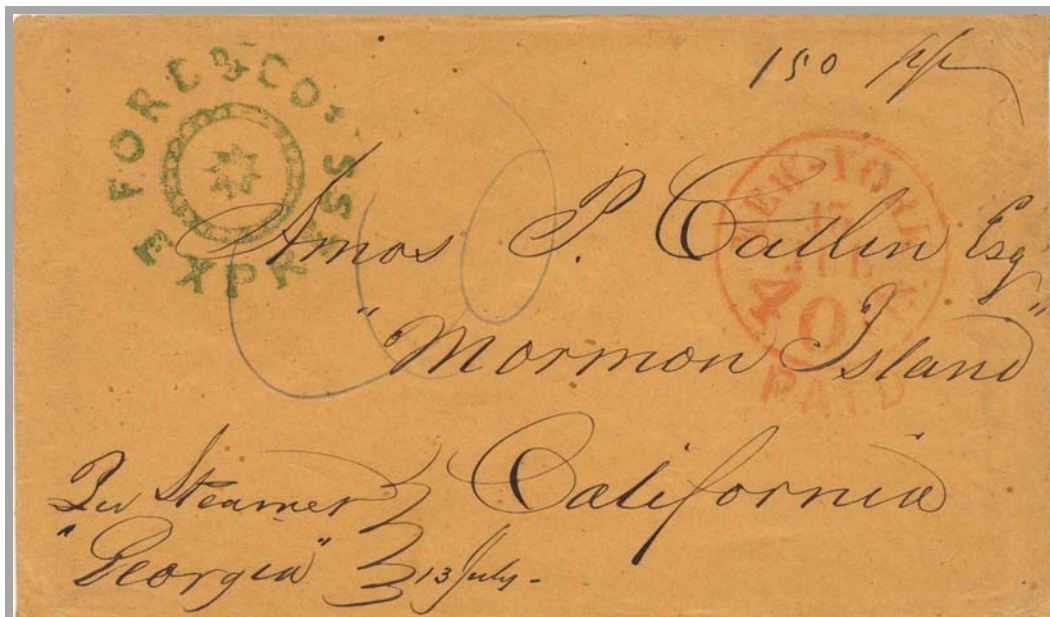 FORD & CO'S
EXPRESS
150
NEW-YORK
JUL
40
PAID
Amos P. Catlin Esq
"Mormon Island"
California
Per Steamer
"Georgia" 13 July